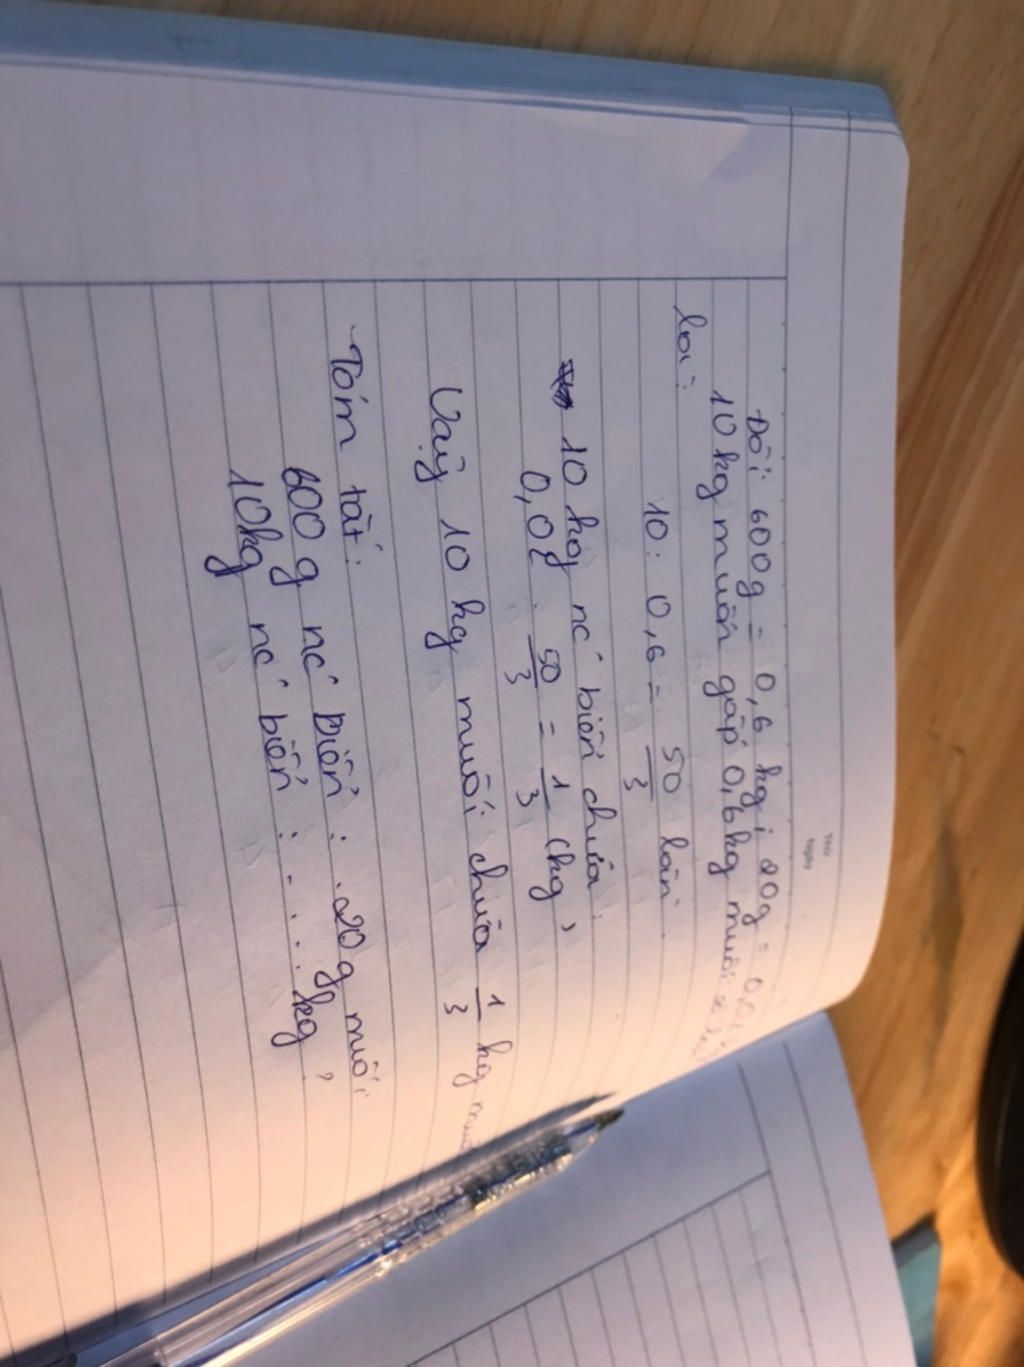 THỨ
NGÀY
Đổi 600g = 0,6 kg; 20g = 0,02
10 kg muối gấp 0,6 kg muối số
lần:
10 : 0,6 = 50/3 lần
10 kg nc biển chứa:
0,02 . 50/3 = 1/3 (kg)
Vậy 10 kg muối chứa 1/3 kg
Tóm tắt:
600 g nc biển : 20g muối
10kg nc biển : .... kg